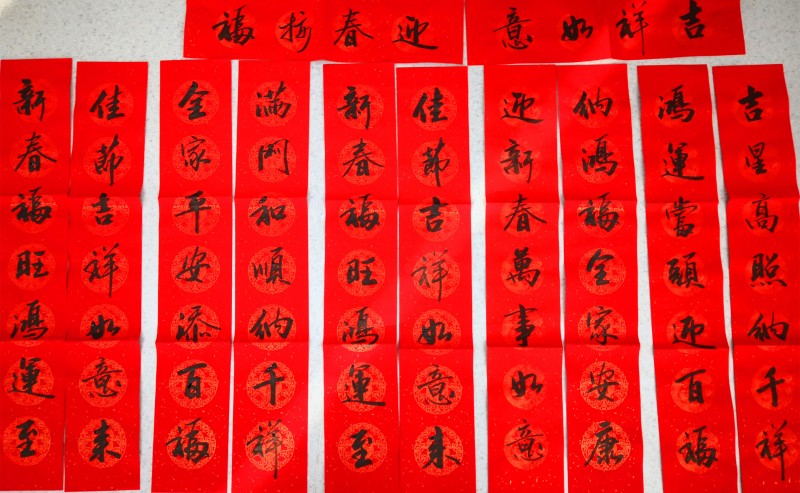 吉祥如意
迎春接福
吉星高照納千祥
鴻運當頭迎百福
納鴻福全家安康
迎新春萬事如意
佳節吉祥如意來
新春福旺鴻運至
滿門和順納千祥
全家平安添百福
佳節吉祥如意來
新春福旺鴻運至